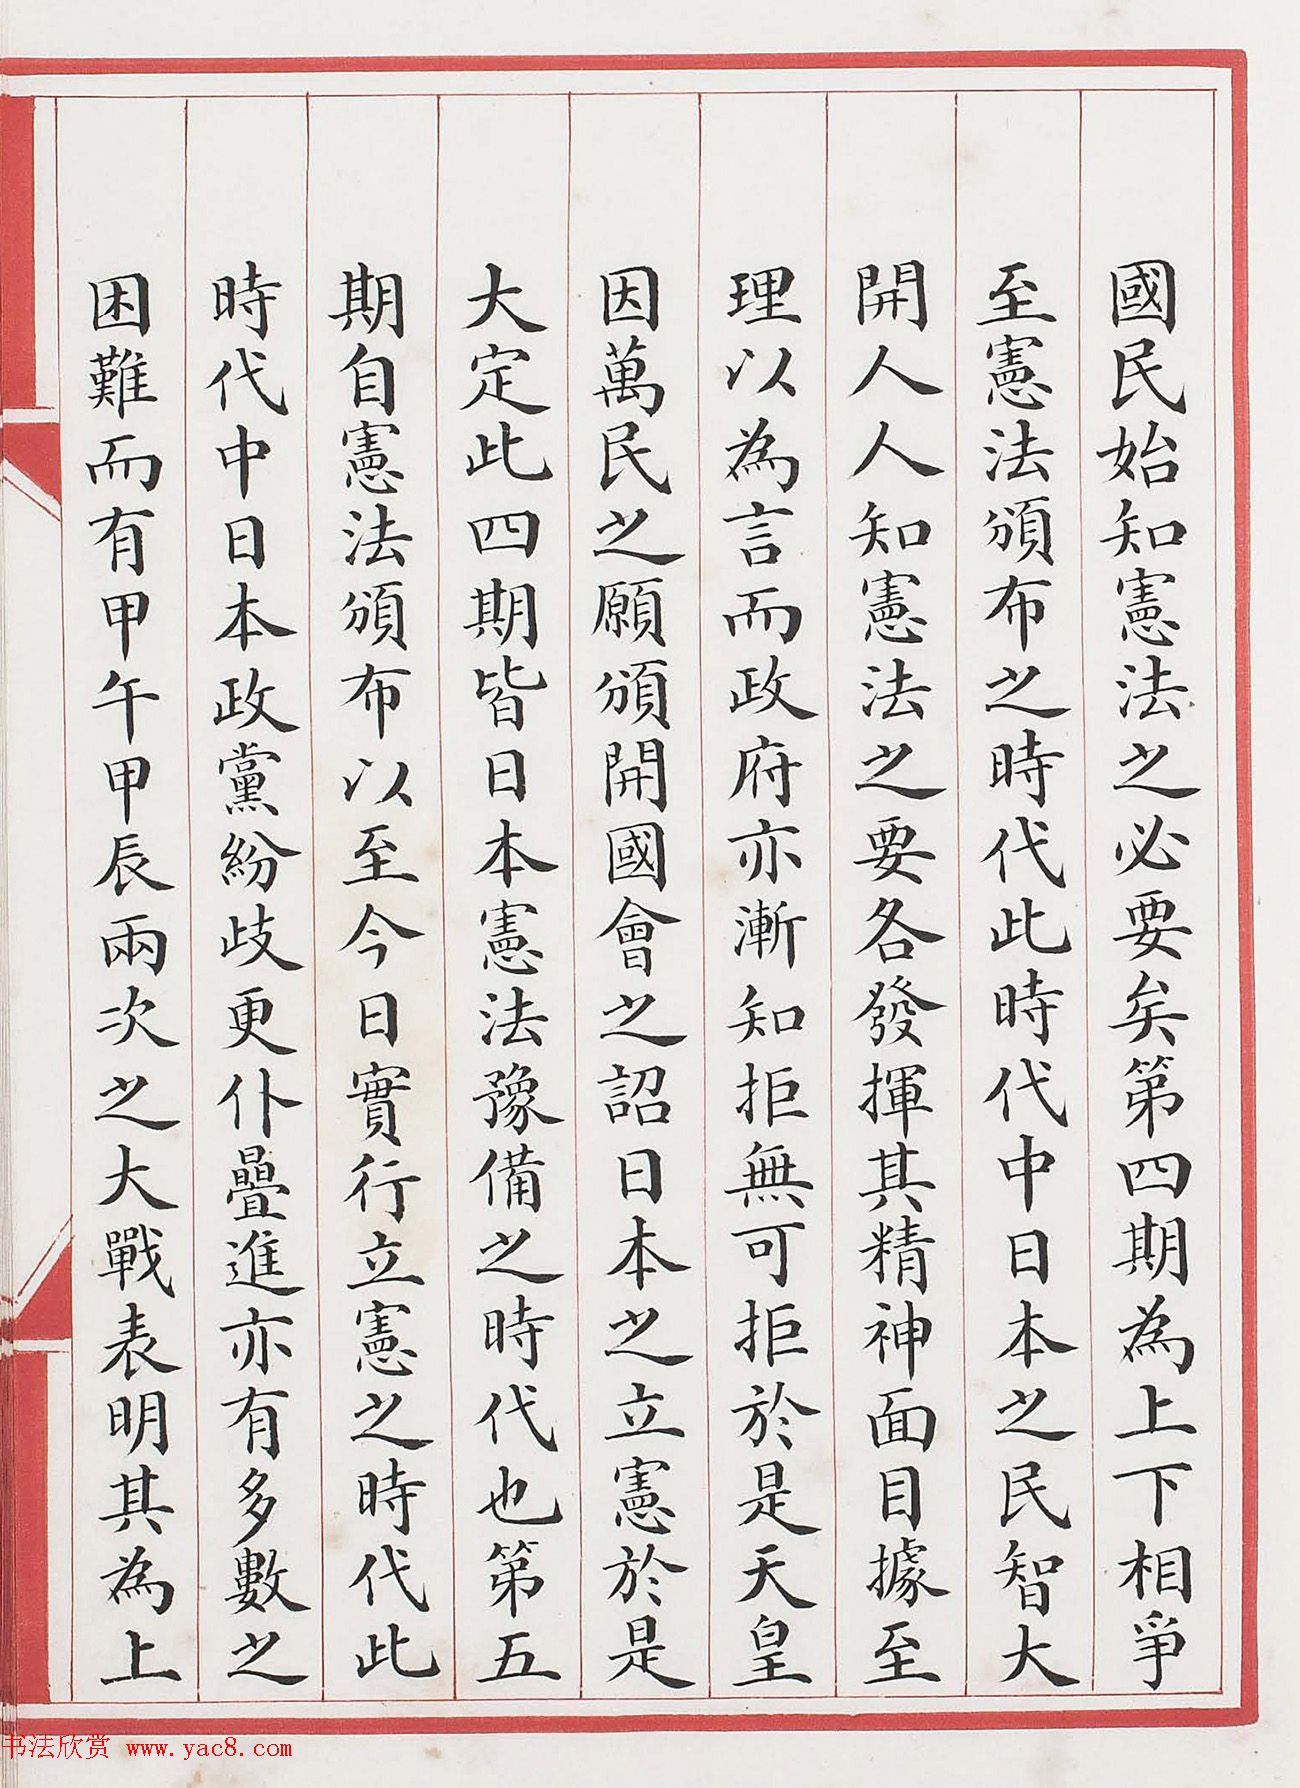 國民始知憲法之必要矣第四期為上下相爭
至憲法頒布之時代此時代中日本之民智大
開人人知憲法之要各發揮其精神面目據至
理以為言而政府亦漸知拒無可拒於是天皇
因萬民之願頒開國會之詔日本之立憲於是
大定此四期皆日本憲法豫備之時代也第五
期自憲法頒布以至今日實行立憲之時代此
時代中日本政黨紛歧更仆疊進亦有多數之
困難而有甲午甲辰兩次之大戰表明其為上
书法欣赏 www.yac8.com